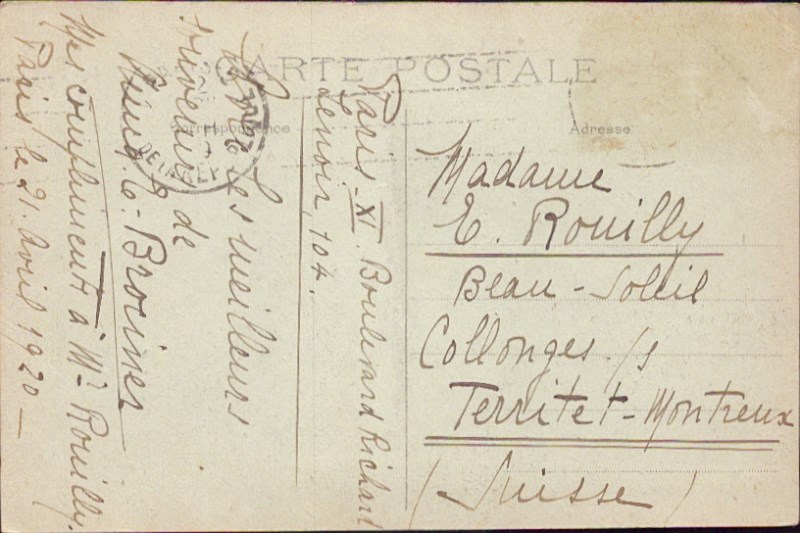 CARTE POSTALE
Correspondance
Adresse
Paris - XI. Boulevard Richard
Lenoir, 104.
les meilleurs
souvenirs de
E. Broimer
Mes compliments à Mr Rouilly.
Paris le 21. Avril 1920 -
Madame
E. Rouilly
Beau-Soleil
Collonges s/s
Territet-Montreux
(Suisse)